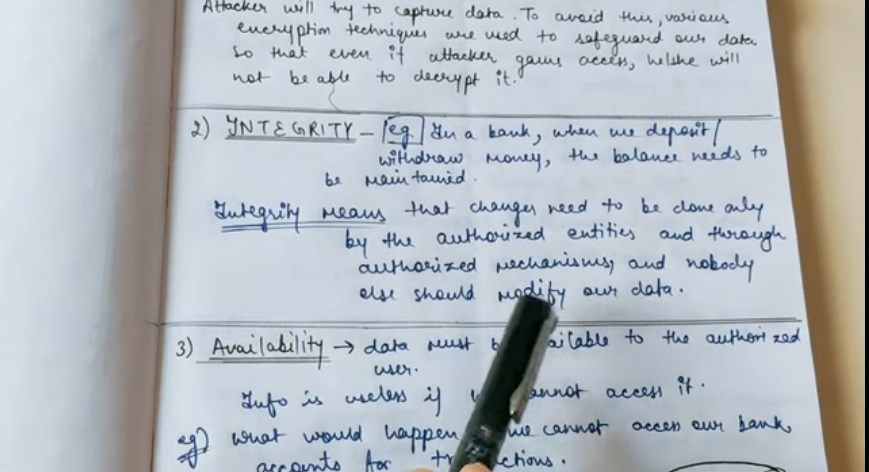 Attacker will try to capture data. To avoid this, various
encryption techniques are used to safeguard our data
so that even if attacker gains access, he/she will
not be able to decrypt it.
2) INTEGRITY - eg. In a bank, when we deposit/
withdraw money, the balance needs to
be maintained.
Integrity means that changes need to be done only
by the authorized entities and through
authorized mechanisms, and nobody
else should modify our data.
3) Availability → data must to the authorized
user.
Info is useless if cannot access it.
eg) what would happen we cannot access our bank
accounts for